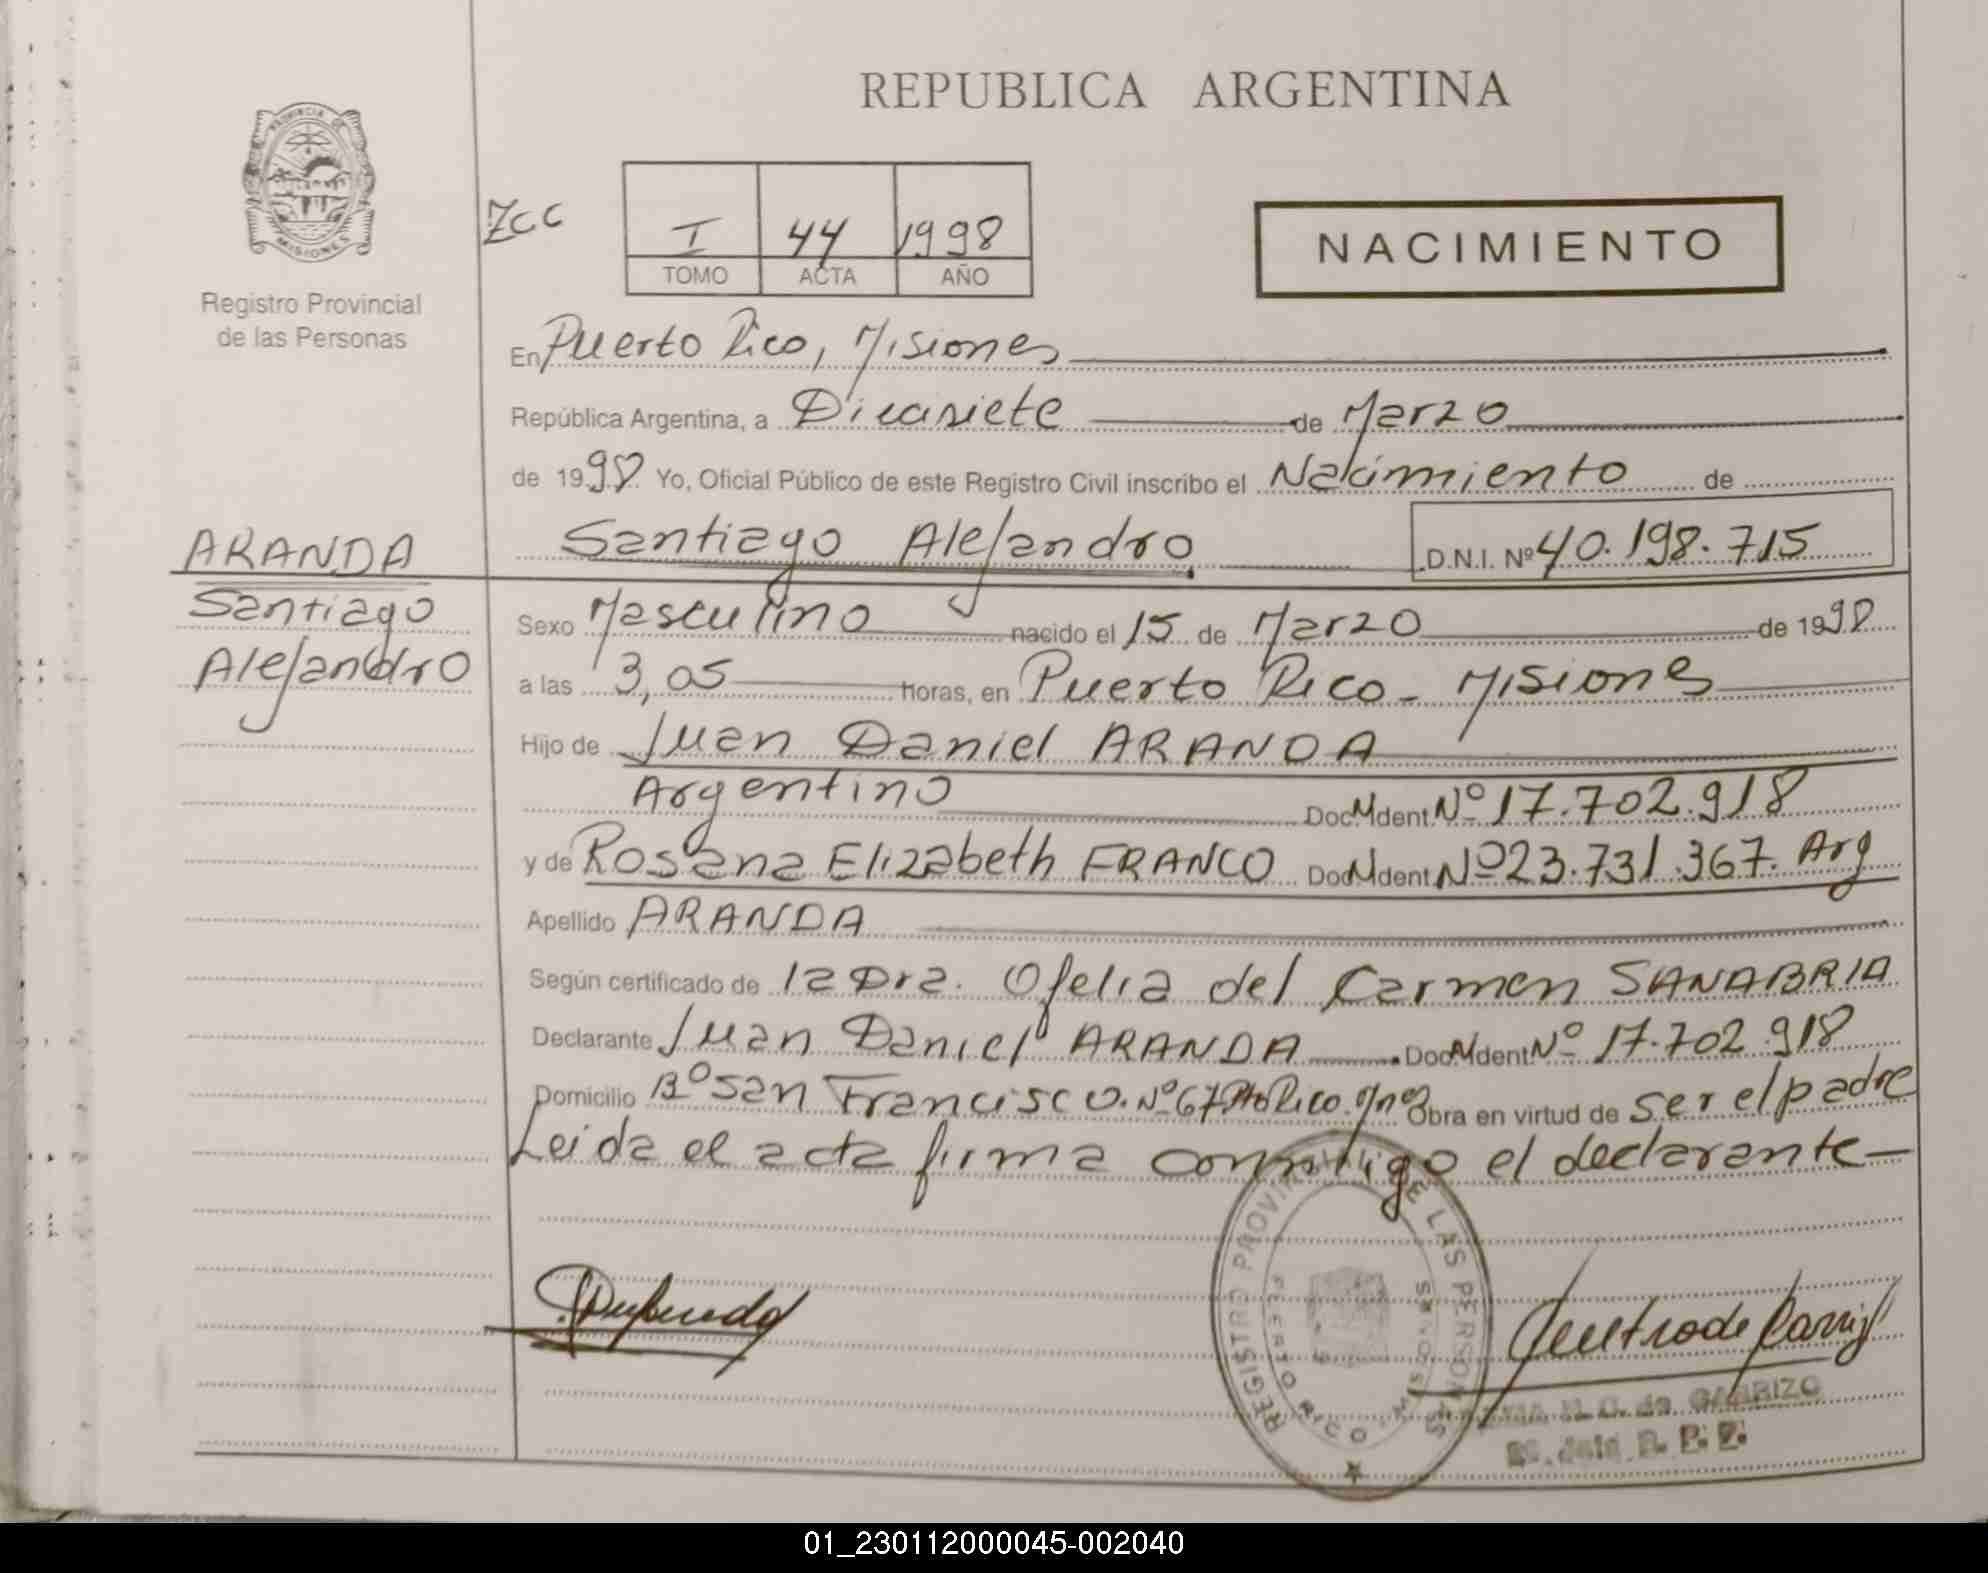 REPUBLICA ARGENTINA
PROVINCIA DE
MISIONES
Registro Provincial
de las Personas
ZCC
I 44 1998
TOMO ACTA AÑO
NACIMIENTO
En Puerto Rico, Misiones
República Argentina, a Diecisiete de Marzo
de 1998 Yo, Oficial Público de este Registro Civil inscribo el Nacimiento de
Santiago Alejandro D.N.I. Nº 40.198.715
ARANDA
Santiago
Alejandro
Sexo Masculino nacido el 15 de Marzo de 1998
a las 3,05 horas, en Puerto Rico - Misiones
Hijo de Juan Daniel ARANDA
Argentino Doc. Ident. Nº 17.702.918
y de Rosana Elizabeth FRANCO Doc. Ident. Nº 23.731.367. Arg
Apellido ARANDA
Según certificado de la Dra. Ofelia del Carmen SANABRIA
Declarante Juan Daniel ARANDA Doc. Ident. Nº 17.702.918
Domicilio Bº San Francisco. Nº 67 Pto Rico. Mnes Obra en virtud de ser el padre
Leida el acta firma conmigo el declarante
REGISTRO PROVINCIAL DE LAS PERSONAS
PUERTO RICO MISIONES
de CARRIZO
01_230112000045-002040